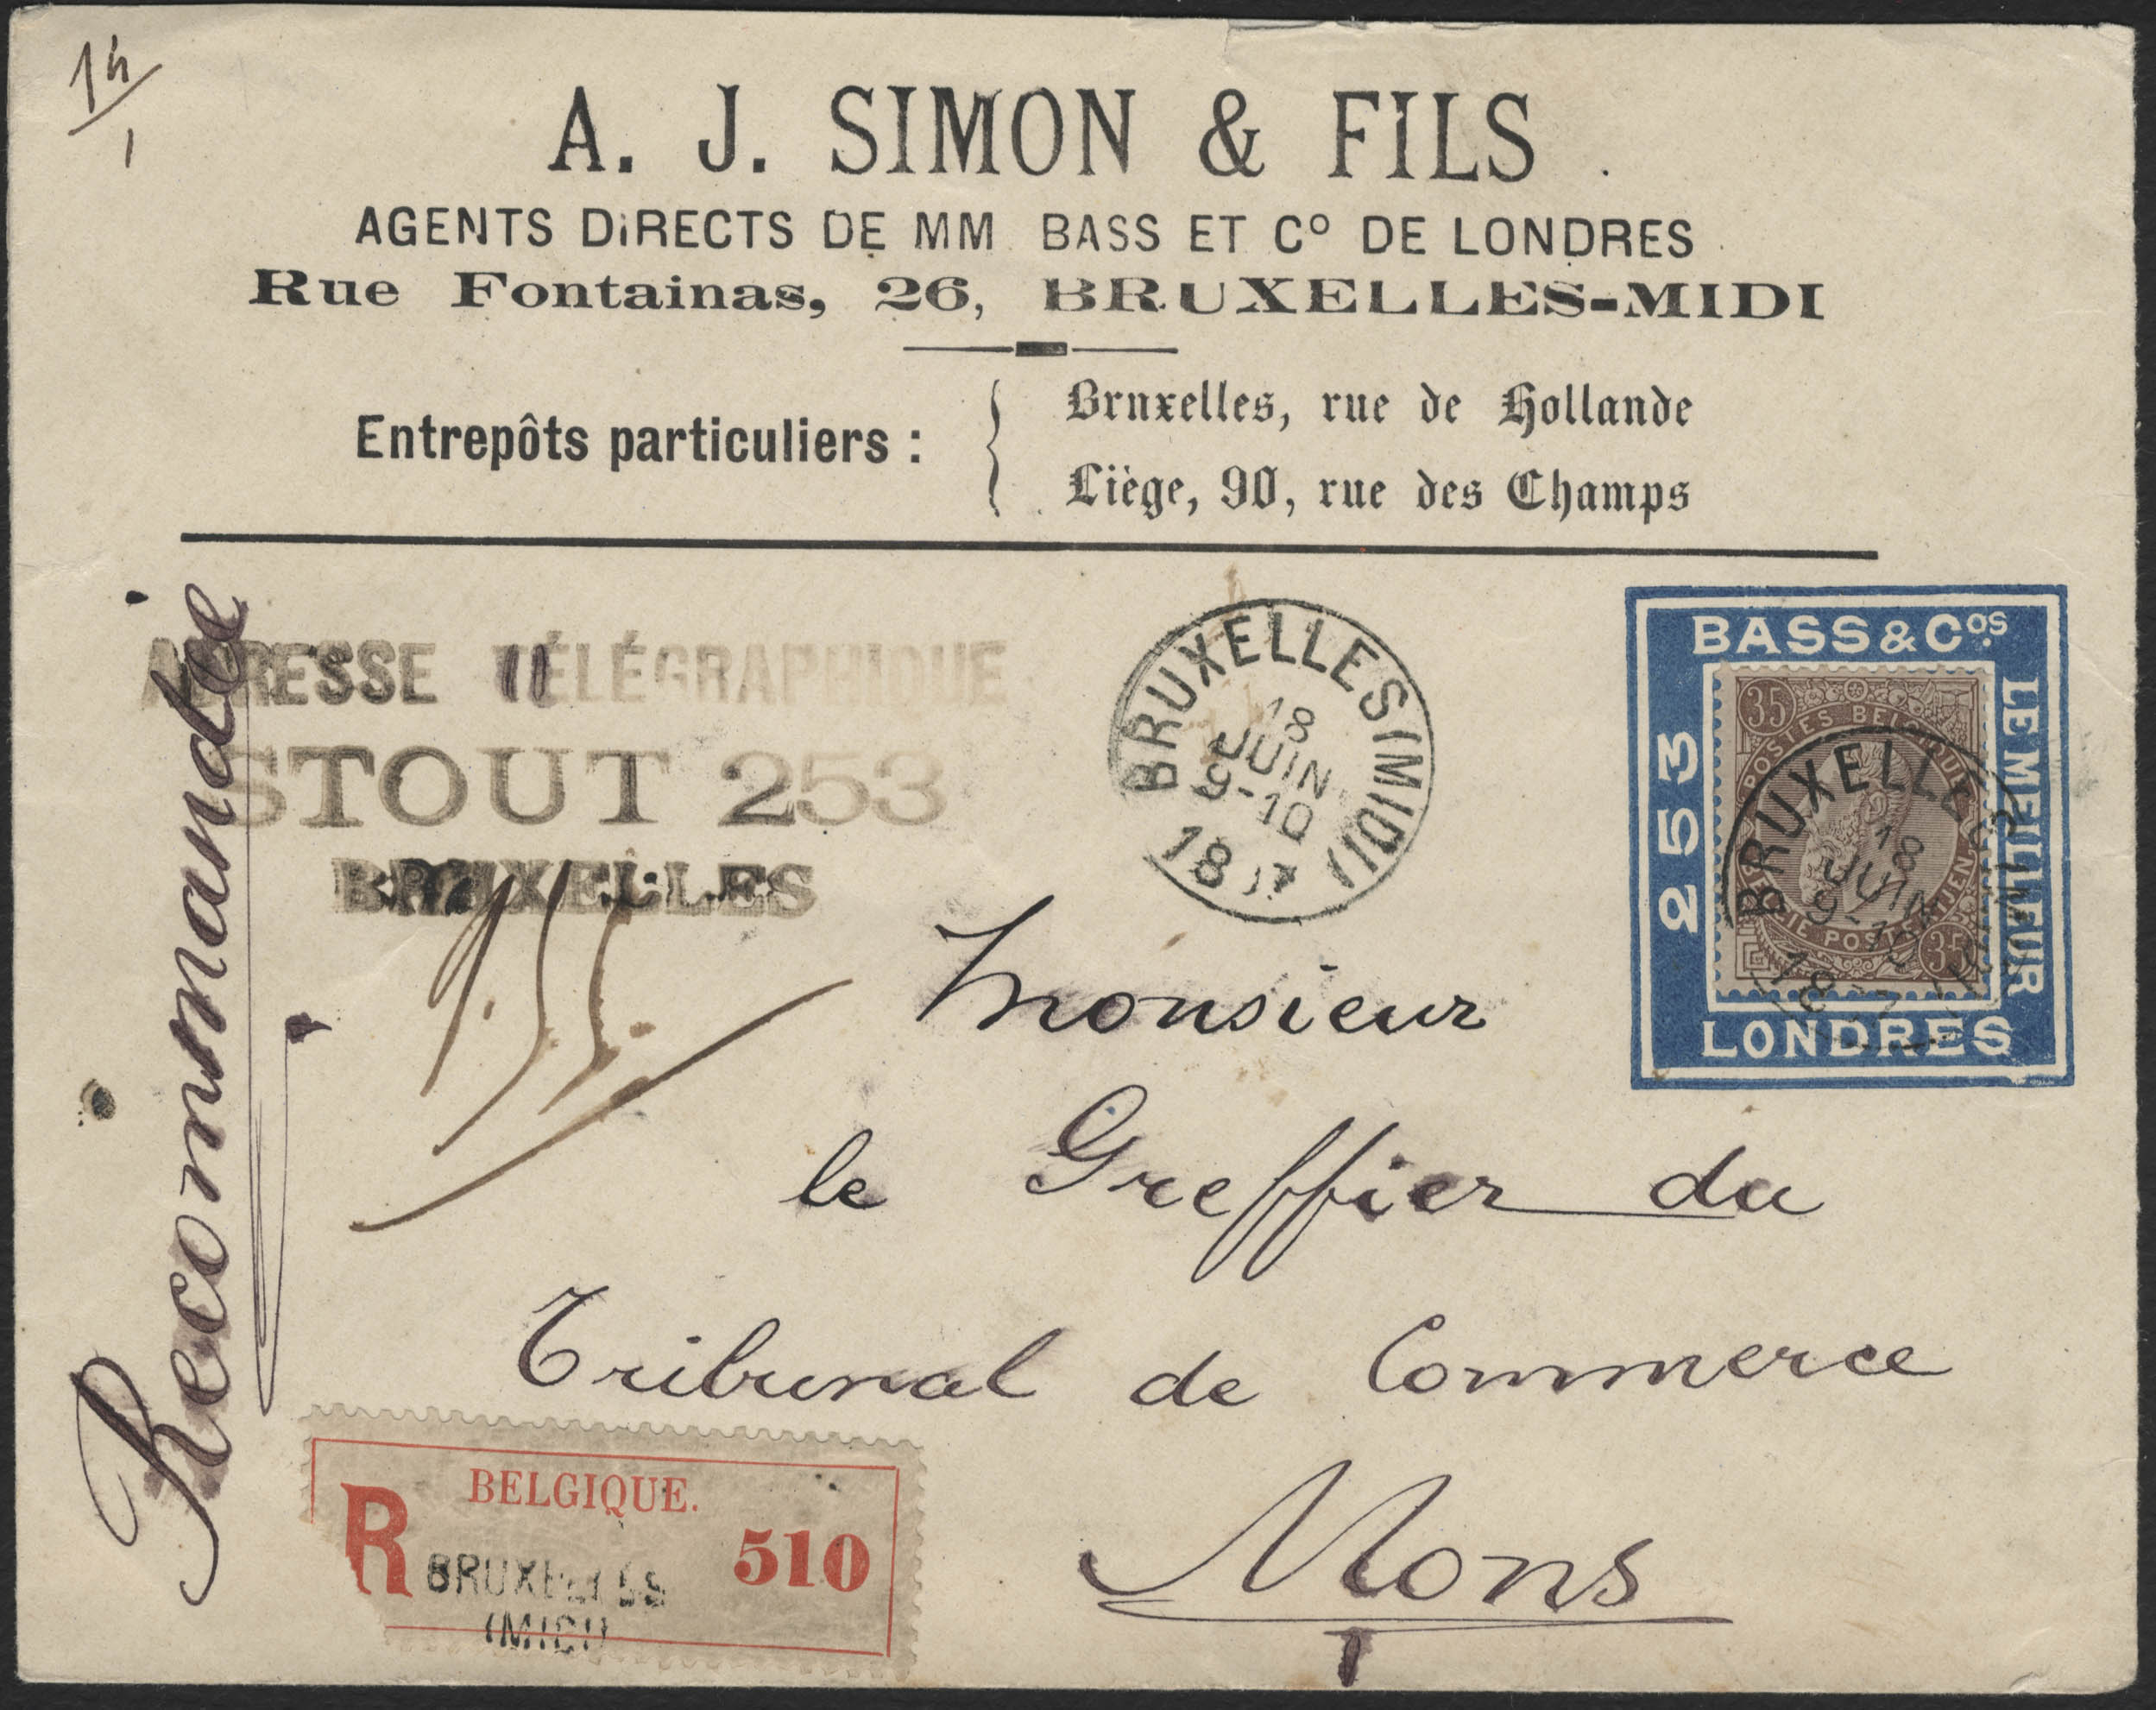 14/1
A. J. SIMON & FILS
AGENTS DIRECTS DE MM BASS ET Cº DE LONDRES
Rue Fontainas, 26, BRUXELLES-MIDI
Entrepôts particuliers :
Bruxelles, rue de Hollande
Liège, 90, rue des Champs
Recommandée
ADRESSE TÉLÉGRAPHIQUE
STOUT 253
BRUXELLES
BRUXELLES (MIDI)
18
JUIN
9-10
BASS & Cos
LE MEILLEUR
LONDRES
253
35
POSTES BELGIQUE
35
BRUXELLES
18
JUIN
9-10
Monsieur
le Greffier du
Tribunal de Commerce
Mons
BELGIQUE.
R
510
BRUXELLES
(MIDI)